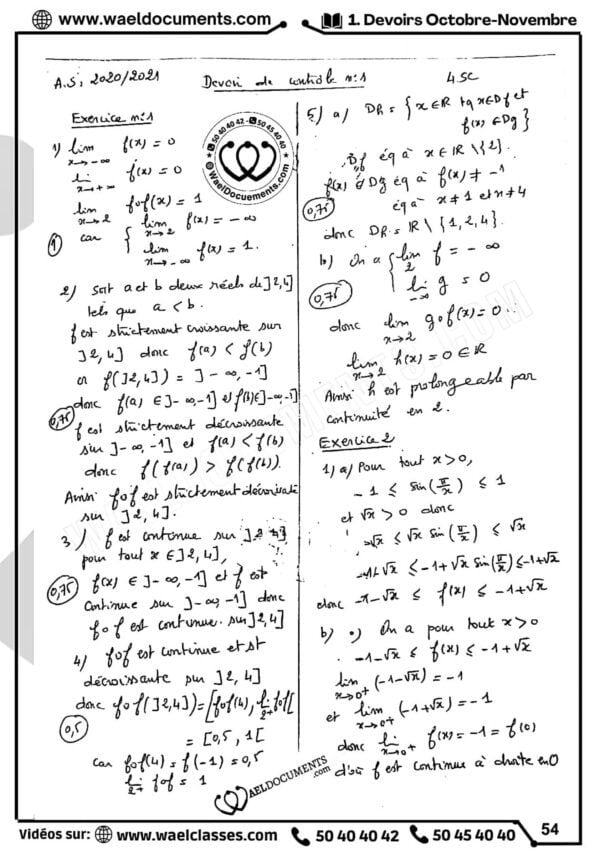 www.waeldocuments.com
1. Devoirs Octobre-Novembre
A.S: 2020/2021
Devoir de contrôle n:1
4.SC
Exercice n:1
1) lim x→-∞ f(x) = 0
lim x→+∞ f(x) = 0
lim x→2 fof(x) = 1
① car { lim x→2 f(x) = -∞
lim x→-∞ f(x) = 1.
2) Soit a et b deux réels de ]2,4]
tels que a < b.
f est strictement croissante sur
]2,4] donc f(a) < f(b)
or f(]2,4]) = ]-∞,-1]
donc f(a) ∈ ]-∞,-1] et f(b) ∈ ]-∞,-1]
0,75
f est strictement décroissante
sur ]-∞,-1] et f(a) < f(b)
donc f(f(a)) > f(f(b)).
Ainsi fof est strictement décroissante
sur ]2,4].
3) f est continue sur ]2,4]
pour tout x ∈ ]2,4],
0,75 f(x) ∈ ]-∞,-1] et f est
continue sur ]-∞,-1] donc
fof est continue sur ]2,4]
4) fof est continue et st
décroissante sur ]2,4]
donc fof(]2,4]) = [fof(4), lim 2+ fof[
0,5
= [0,5, 1[
car fof(4) = f(-1) = 0,5
lim 2+ fof = 1
50 40 40 42 - 50 45 40 40
WaelDocuements.com
5) a) Dh = {x ∈ ℝ tq x ∈ Df et
f(x) ∈ Dg}
Df éq à x ∈ ℝ\{2}.
f(x) ∈ Dg éq à f(x) ≠ -1
0,75 éq à x ≠ 1 et x ≠ 4
donc Dh = ℝ\{1,2,4}.
b) On a { lim 2 f = -∞
0,75 lim -∞ g = 0
donc lim x→2 gof(x) = 0.
lim x→2 h(x) = 0 ∈ ℝ
Ainsi h est prolongeable par
continuité en 2.
Exercice 2
1) a) Pour tout x > 0,
-1 ≤ sin(π/x) ≤ 1
et √x > 0 donc
-√x ≤ √x sin(π/x) ≤ √x
-1-√x ≤ -1+√x sin(π/x) ≤ -1+√x
donc -1-√x ≤ f(x) ≤ -1+√x
b) •) On a pour tout x > 0
-1-√x ≤ f(x) ≤ -1+√x
lim x→0+ (-1-√x) = -1
et lim x→0+ (-1+√x) = -1
donc lim x→0+ f(x) = -1 = f(0)
d'où f est continue à droite en 0
WAELDOCUMENTS.com
Vidéos sur: www.waelclasses.com 50 40 40 42 50 45 40 40 54